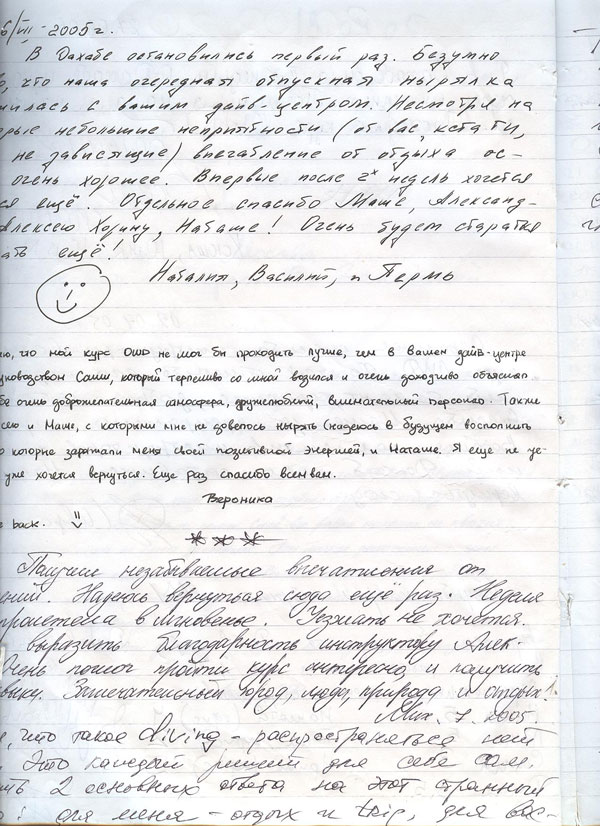 6/VII - 2005г.
В Дахабе остановились первый раз. Безумно
, что наша очередная отпускная нырялка
илась с вашим дайв-центром. Несмотря на
орые небольшие неприятности (от вас, кстати,
не зависящие) впечатление от отдыха ос-
очень хорошее. Впервые после 2х недель хочется
ся ещё. Отдельное спасибо Маше, Александ-
Алексею Хорину, Наташе! Очень будем стараться
ать ещё!
Наталия, Василий, г. Пермь
ю, что мой курс OWD не мог бы проходить лучше, чем в Вашем дайв-центре
уководством Саши, который терпеливо со мной возился и очень доходчиво объяснял
очень доброжелательная атмосфера, дружелюбный, внимательный персонал. Также
сею и Маше, с которыми мне не довелось нырять (надеюсь в будущем восполнить
о которые заряжали меня своей позитивной энергией, и Наташе. Я ещё не уе-
уже хочется вернуться. Еще раз спасибо всем вам.
Вероника
back.
Получили незабываемые впечатления от
ений. Надеюсь вернуться сюда ещё раз. Неделя
пролетела в мгновенье. Уезжать не хочется.
выразить благодарность инструктору Алек-
Очень помог пройти курс интересно и получить
выки. Замечательный город, люди, природа и отдых!
7. 2005.
, что такое diving - распространяться
Это каждый решит для себя сам.
ть 2 основных ответа на этот странный
для меня - отдых и trip, для вас-